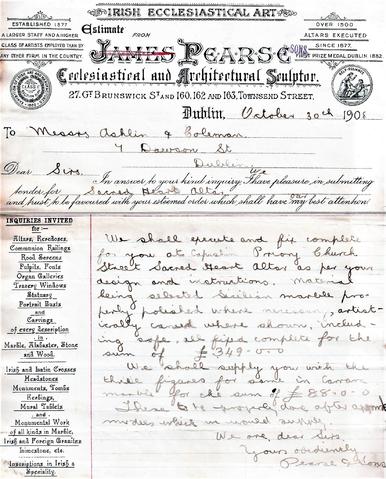 IRISH ECCLESIASTICAL ART
ESTABLISHED IN 1877
A LARGER STAFF AND A HIGHER
CLASS OF ARTISTS EMPLOYED THAN BY
ANY OTHER FIRM IN THE COUNTRY
OVER 1500
ALTARS EXECUTED
SINCE 1877.
FIRST PRIZE MEDAL, DUBLIN 1882
Estimate
FROM
JAMES PEARSE & SONS
Ecclesiastical and Architectural Sculptor.
27, GT BRUNSWICK ST AND 160, 162 AND 163, TOWNSEND STREET,
Dublin, October 30th 190
To Messrs Ashlin & Coleman
7 Dawson St
Dublin
Dear Sirs,
We
In answer to your kind inquiry I have pleasure in submitting
tender for Sacred Heart Altar
our
and trust to be favoured with your esteemed order which shall have my best attention
INQUIRIES INVITED
for:—
Altars, Reredoses,
Communion Railings
Rood Screens
Pulpits, Fonts
Organ Galleries
Tracery Windows
Statuary
Portrait Busts
and
Carvings
of every description
in
Marble, Alabaster, Stone
and Wood.
Irish and Latin Crosses
Headstones
Monuments, Tombs
Railings,
Mural Tablets
and
Monumental Work
of all kinds in Marble,
Irish and Foreign Granites
Limestone, etc.
Inscriptions in Irish a
Speciality.
We shall execute and fix complete
for you at Priory Church
Street Sacred Heart Altar as per your
design and instructions. Material
being selected Sicilian marble pro-
perly polished where necessary, artist-
ically carved where shown, includ-
ing safe all fixed complete for the
sum of £349-0-0
We shall supply you with the
three figures for same in Carrara
marble for the sum of £88-0-0
These to be properly done after approved
models which we would supply.
We are, dear Sirs,
Yours obediently
Pearse & Sons